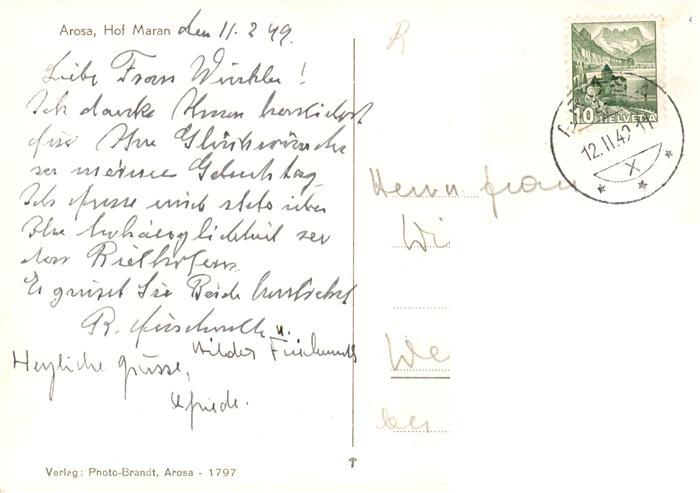 Arosa, Hof Maran den 11. 2 49.
Liebe Frau Winkler!
Ich danke Ihnen herzlichst
für Ihre Glückwünsche
zu meinem Geburtstag
Ich freue mich stets über
Ihre
den
Es grüsst Sie Beide herzlichst
R. u.
Hilde
Herzliche Grüsse,
Verlag: Photo-Brandt, Arosa - 1797
R
10 HELVETIA
12.II.49.11
X
Herrn Frau
Wi
We
bei